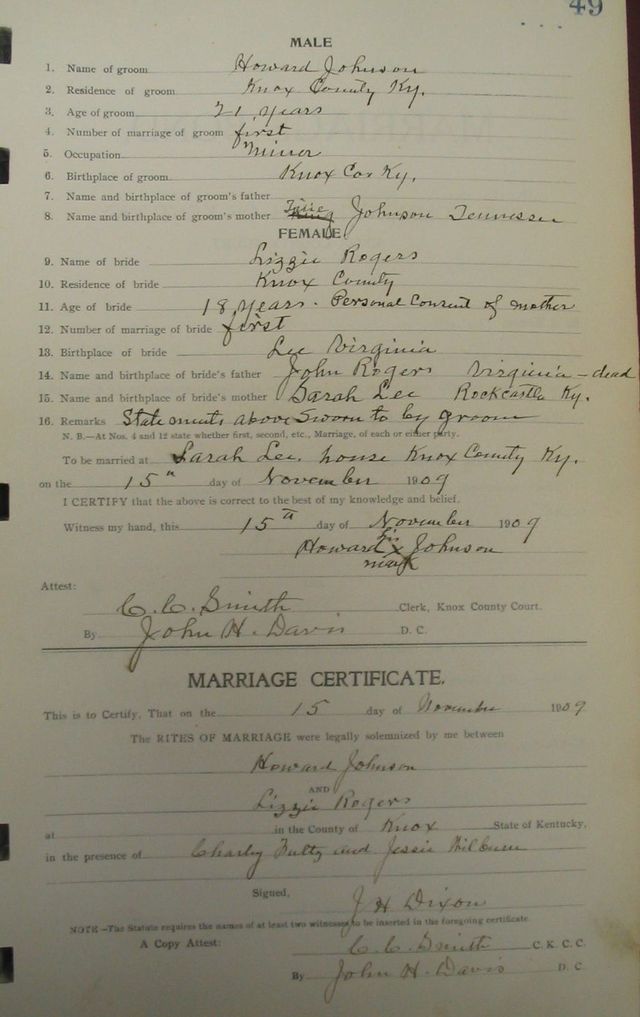 49
MALE
1. Name of groom Howard Johnson
2. Residence of groom Knox County Ky.
3. Age of groom 21 years
4. Number of marriage of groom first
5. Occupation Miner
6. Birthplace of groom Knox Co. Ky.
7. Name and birthplace of groom's father
8. Name and birthplace of groom's mother Johnson Tennessee
FEMALE
9. Name of bride Lizzie Rogers
10. Residence of bride Knox County
11. Age of bride 18 years. Personal Consent of mother
12. Number of marriage of bride first
13. Birthplace of bride Lee Virginia
14. Name and birthplace of bride's father John Rogers Virginia - dead
15. Name and birthplace of bride's mother Sarah Lee Rockcastle Ky.
16. Remarks Statements above Sworn to by groom
N. B.—At Nos. 4 and 12 state whether first, second, etc., Marriage, of each or either party.
To be married at Sarah Lee. house Knox County Ky.
on the 15th day of November 1909
I CERTIFY that the above is correct to the best of my knowledge and belief.
Witness my hand, this 15th day of November 1909
his
Howard x Johnson
mark
Attest:
C. C. Smith Clerk, Knox County Court.
By John H. Davis D. C.
MARRIAGE CERTIFICATE.
This is to Certify, That on the 15 day of November 1909
The RITES OF MARRIAGE were legally solemnized by me between
Howard Johnson
AND
Lizzie Rogers
at in the County of Knox State of Kentucky,
in the presence of Charley Fultz and Jessie Wilburn
Signed,
J H Dixon
NOTE—The Statute requires the names of at least two witnesses to be inserted in the foregoing certificate.
A Copy Attest: C. C. Smith C. K. C. C.
By John H. Davis D. C.